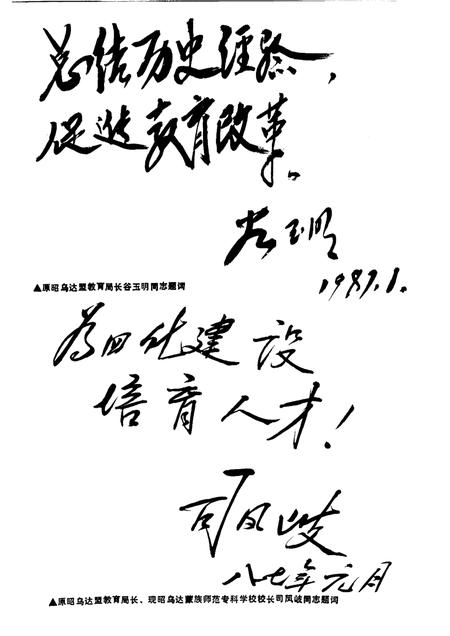 总结历史经验，
促进教育改革。
谷玉明
1987.1.
▲原昭乌达盟教育局长谷玉明同志题词
为四化建设
培育人才！
司凤岐
八七年元月
▲原昭乌达盟教育局长、现昭乌达蒙族师范专科学校校长司凤岐同志题词